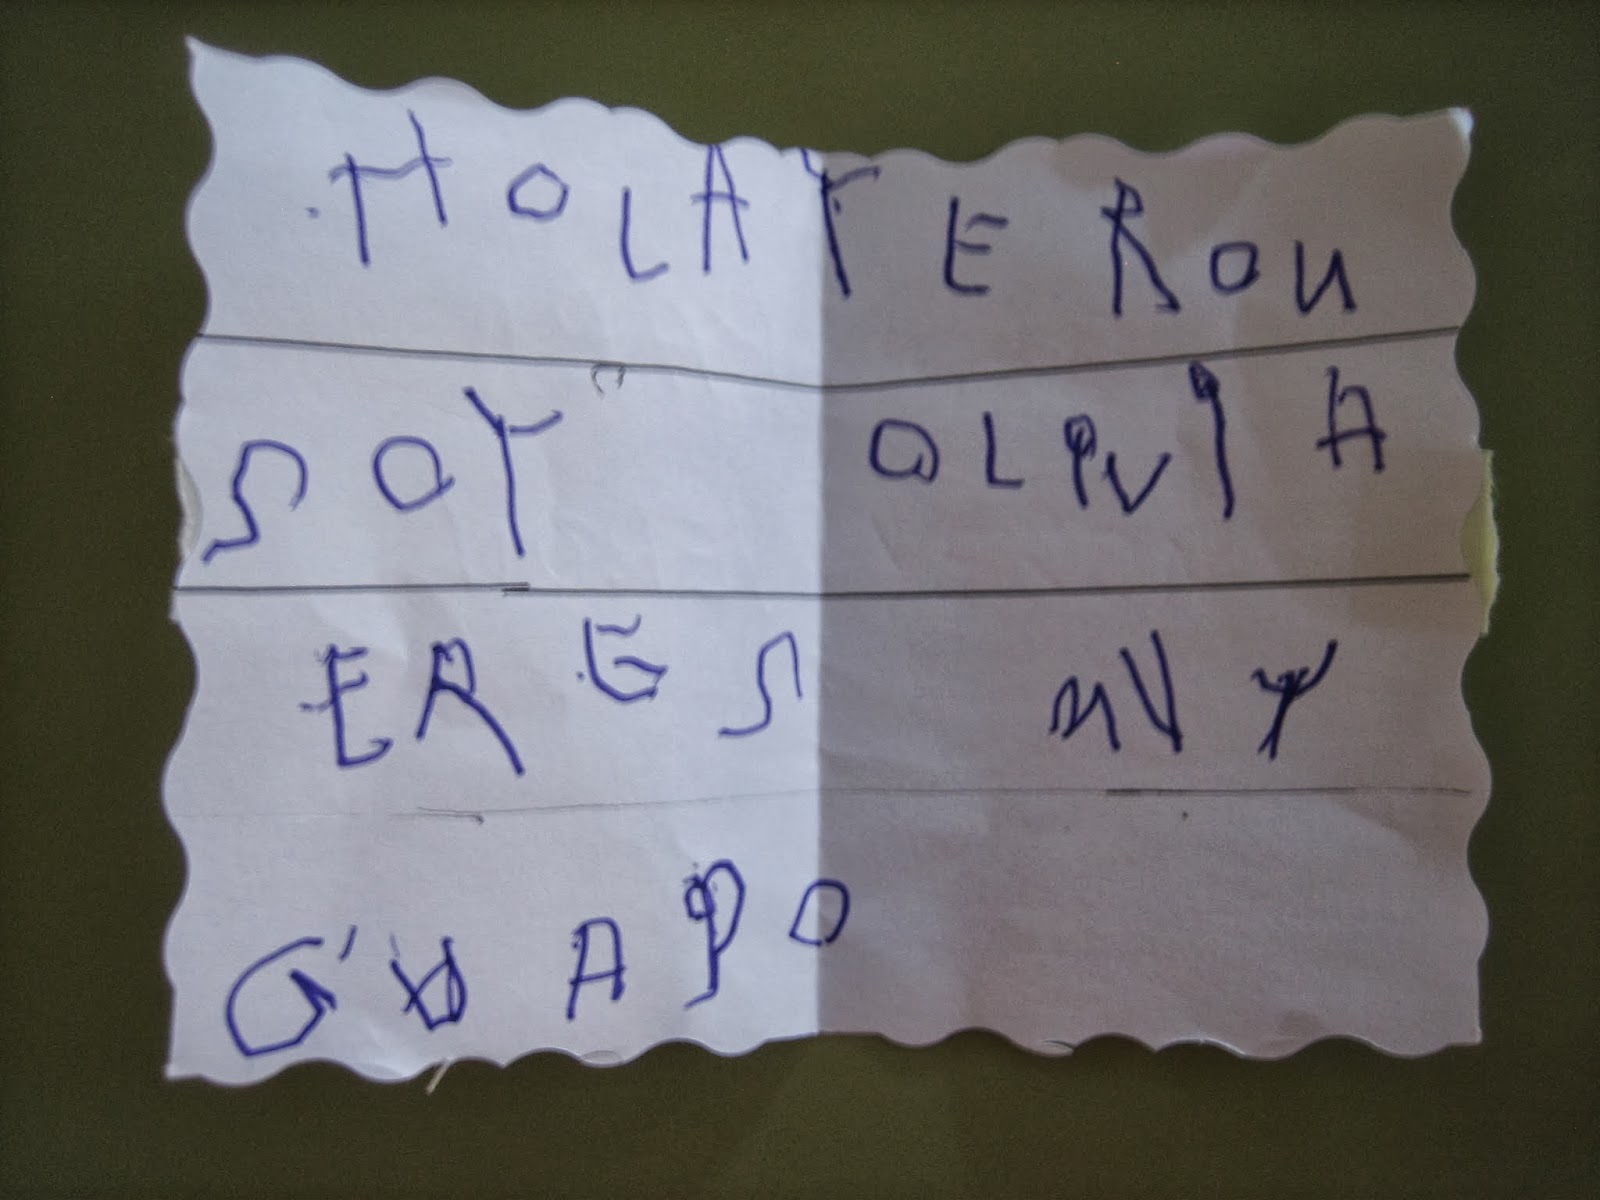 HOLA YEROU
SOY OLPVIA
ERES MVY
GUAPO